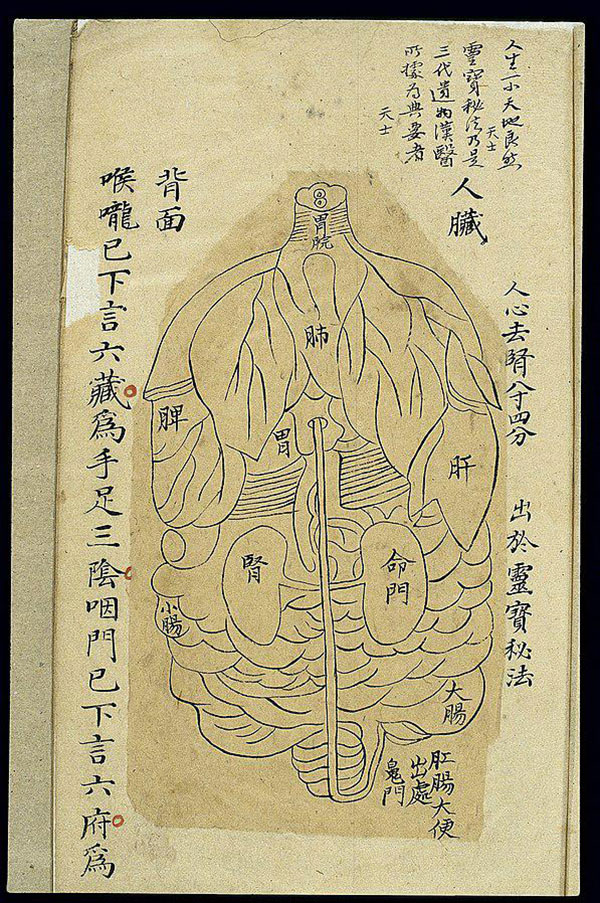 人生一小天地良然
天士
靈寶秘法乃是
三代遺物漢醫
所據為典要者
天士
人心去腎八寸四分　出於靈寶秘法
人臟
胃脘
肺
脾
胃
肝
腎
命門
小腸
大腸
肛腸大便
出處
鬼門
背面
喉嚨已下言六藏爲手足三陰咽門已下言六府爲